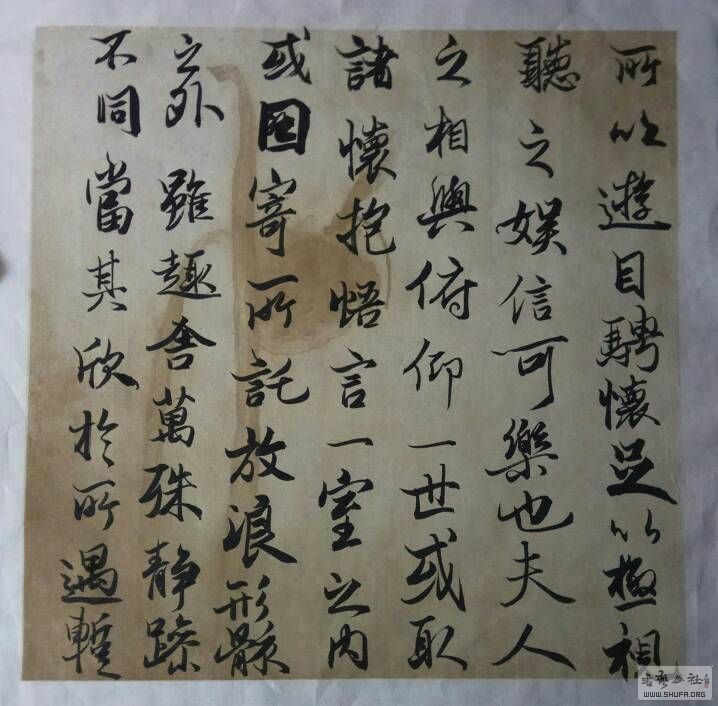 所以遊目騁懷足以極視
聽之娱信可樂也夫人
之相與俯仰一世或取
諸懷抱悟言一室之內
或因寄所託放浪形骸
之外雖趣舍萬殊静躁
不同當其欣於所遇暫
书艺公社
WWW.SHUFA.ORG